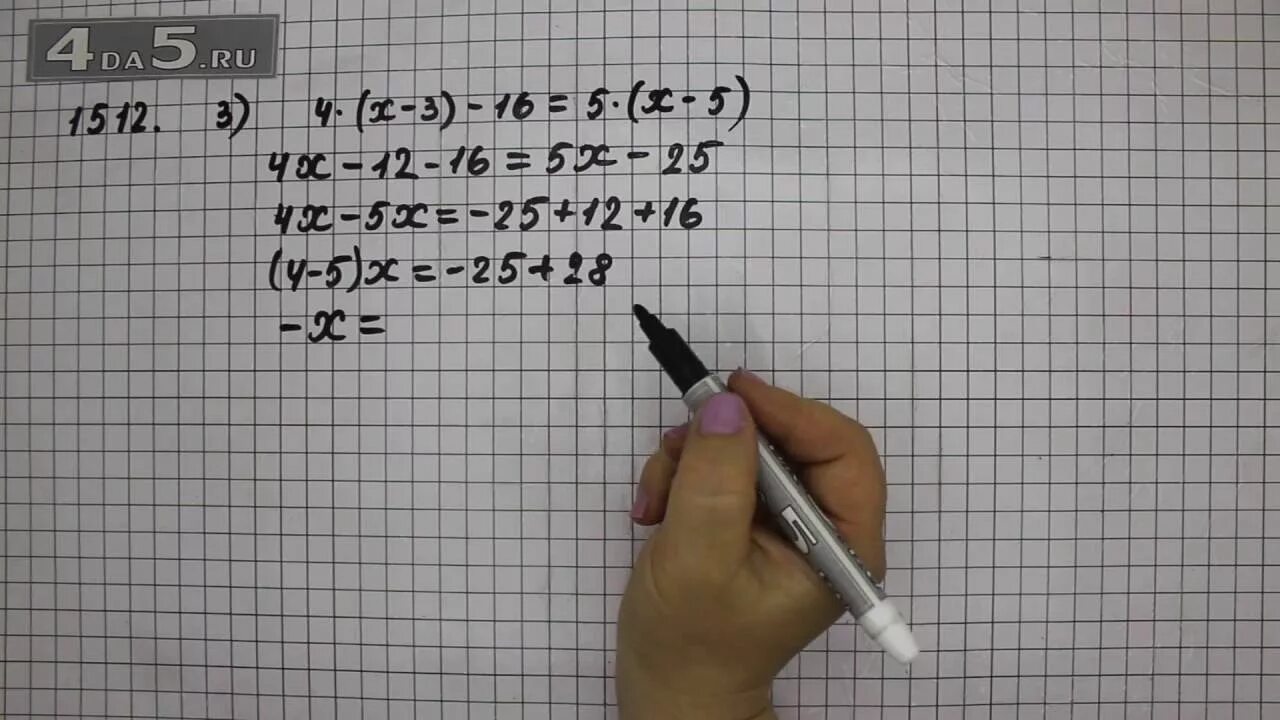 4DA5.RU
1512. 3) 4·(x-3)-16=5·(x-5)
4x-12-16=5x-25
4x-5x=-25+12+16
(4-5)x=-25+28
-x=
5